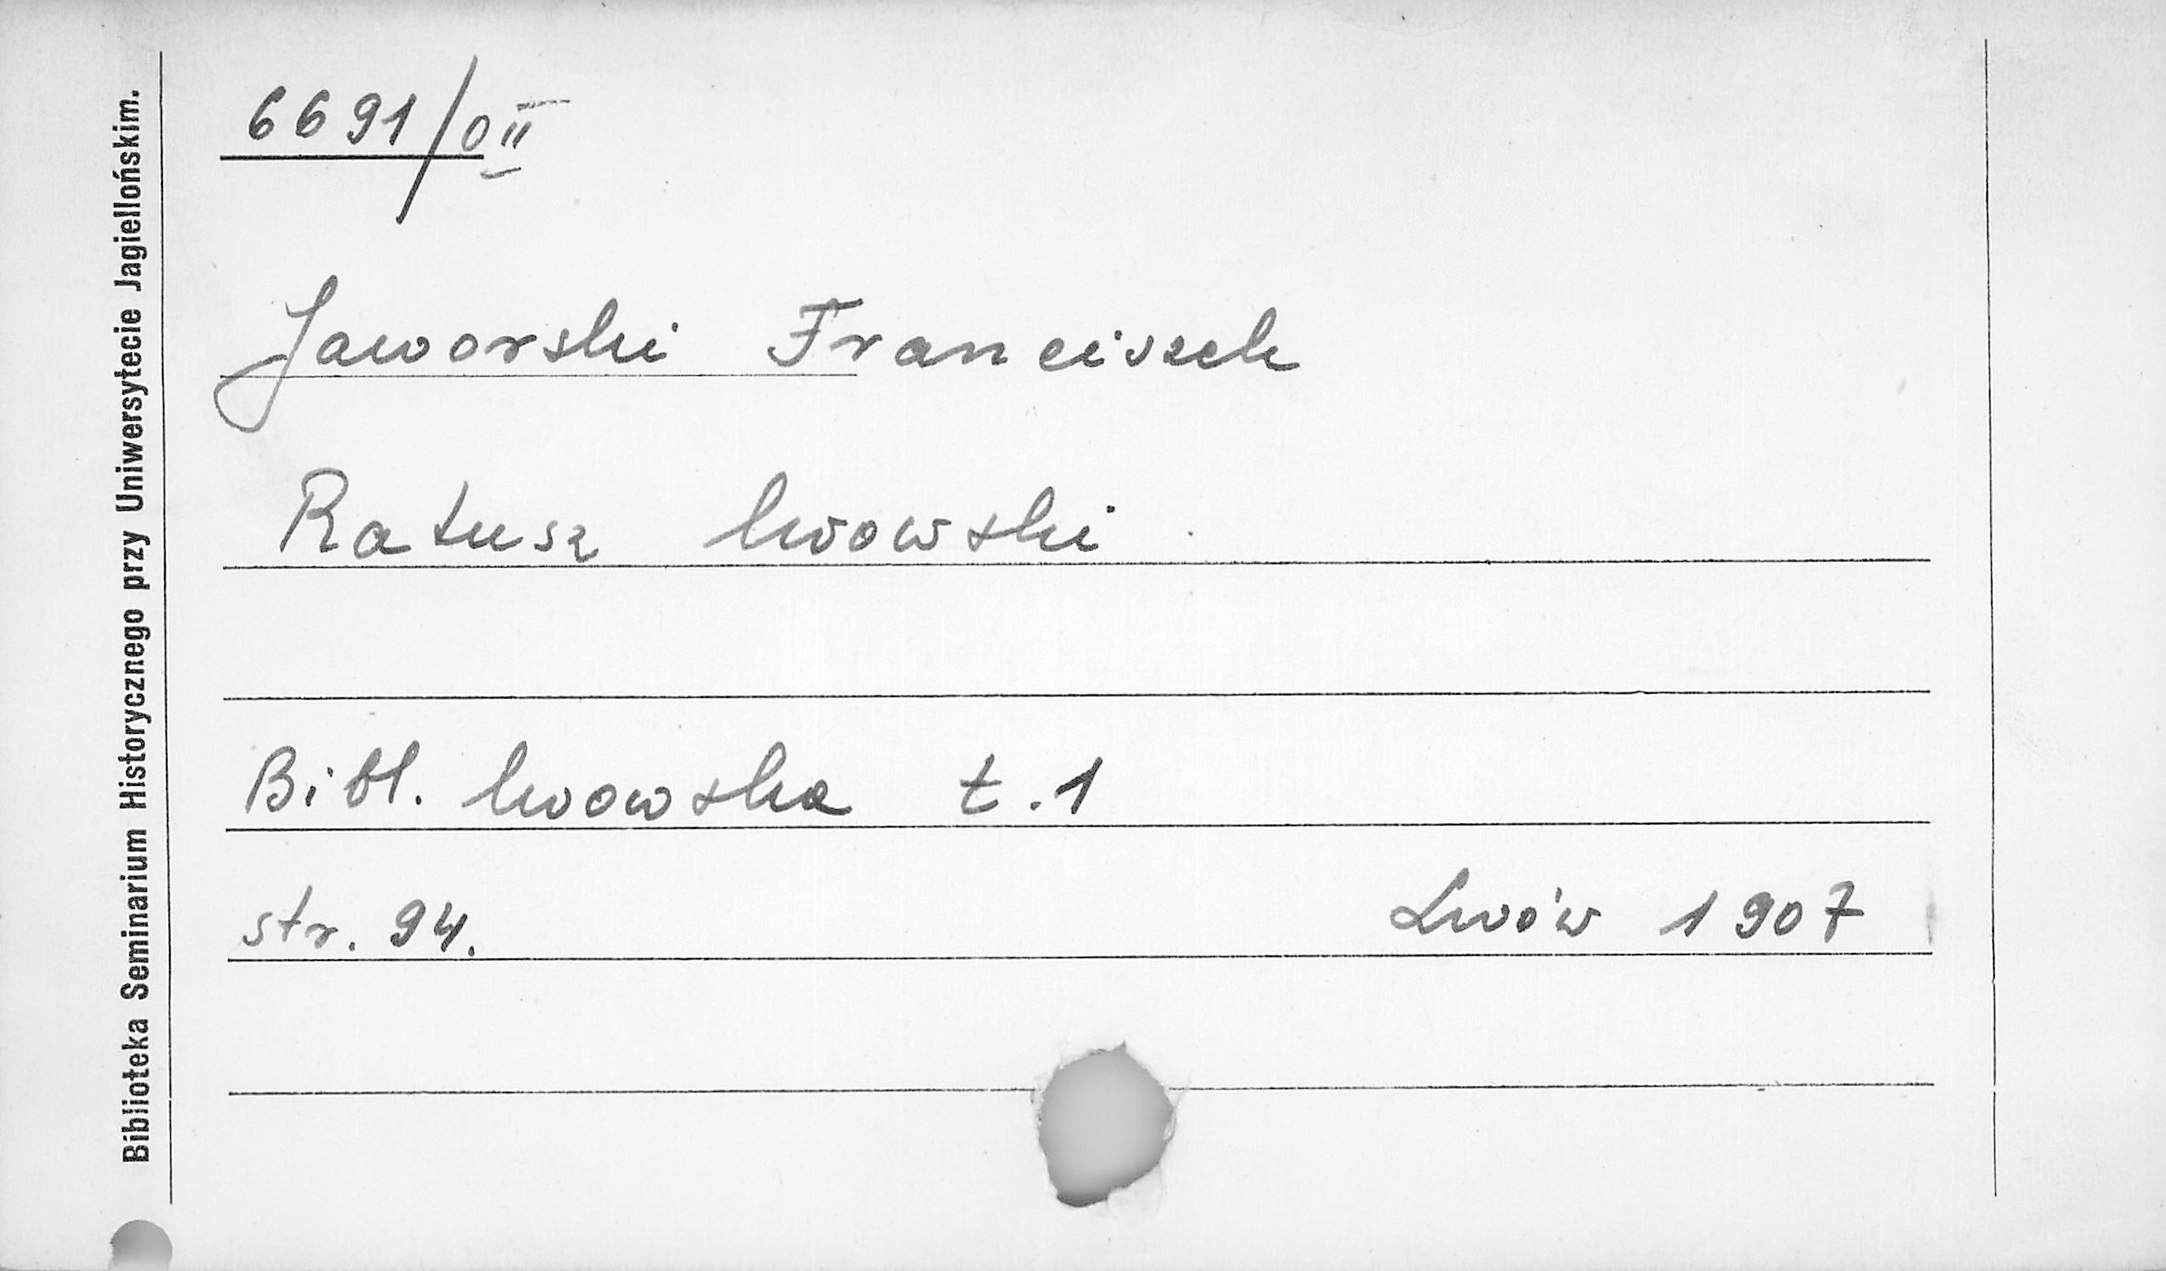 6691/0 II
Jaworski Franciszek
Ratusz lwowski
Bibl. lwowska t. 1
str. 94. Lwów 1907
Biblioteka Seminarium Historycznego przy Uniwersytecie Jagiellońskim.